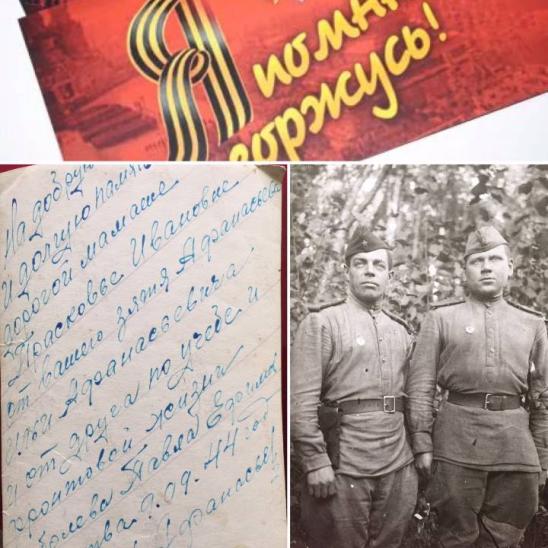 Я помн
горжусь!
На добрую
и долгую память
дорогой мамаше
Прасковье Ивановне
от вашего зятя Афанасьева
Ильи Афанасьевича
и от друга по учебе и
фронтовой жизни
Павла
9.09.44 год